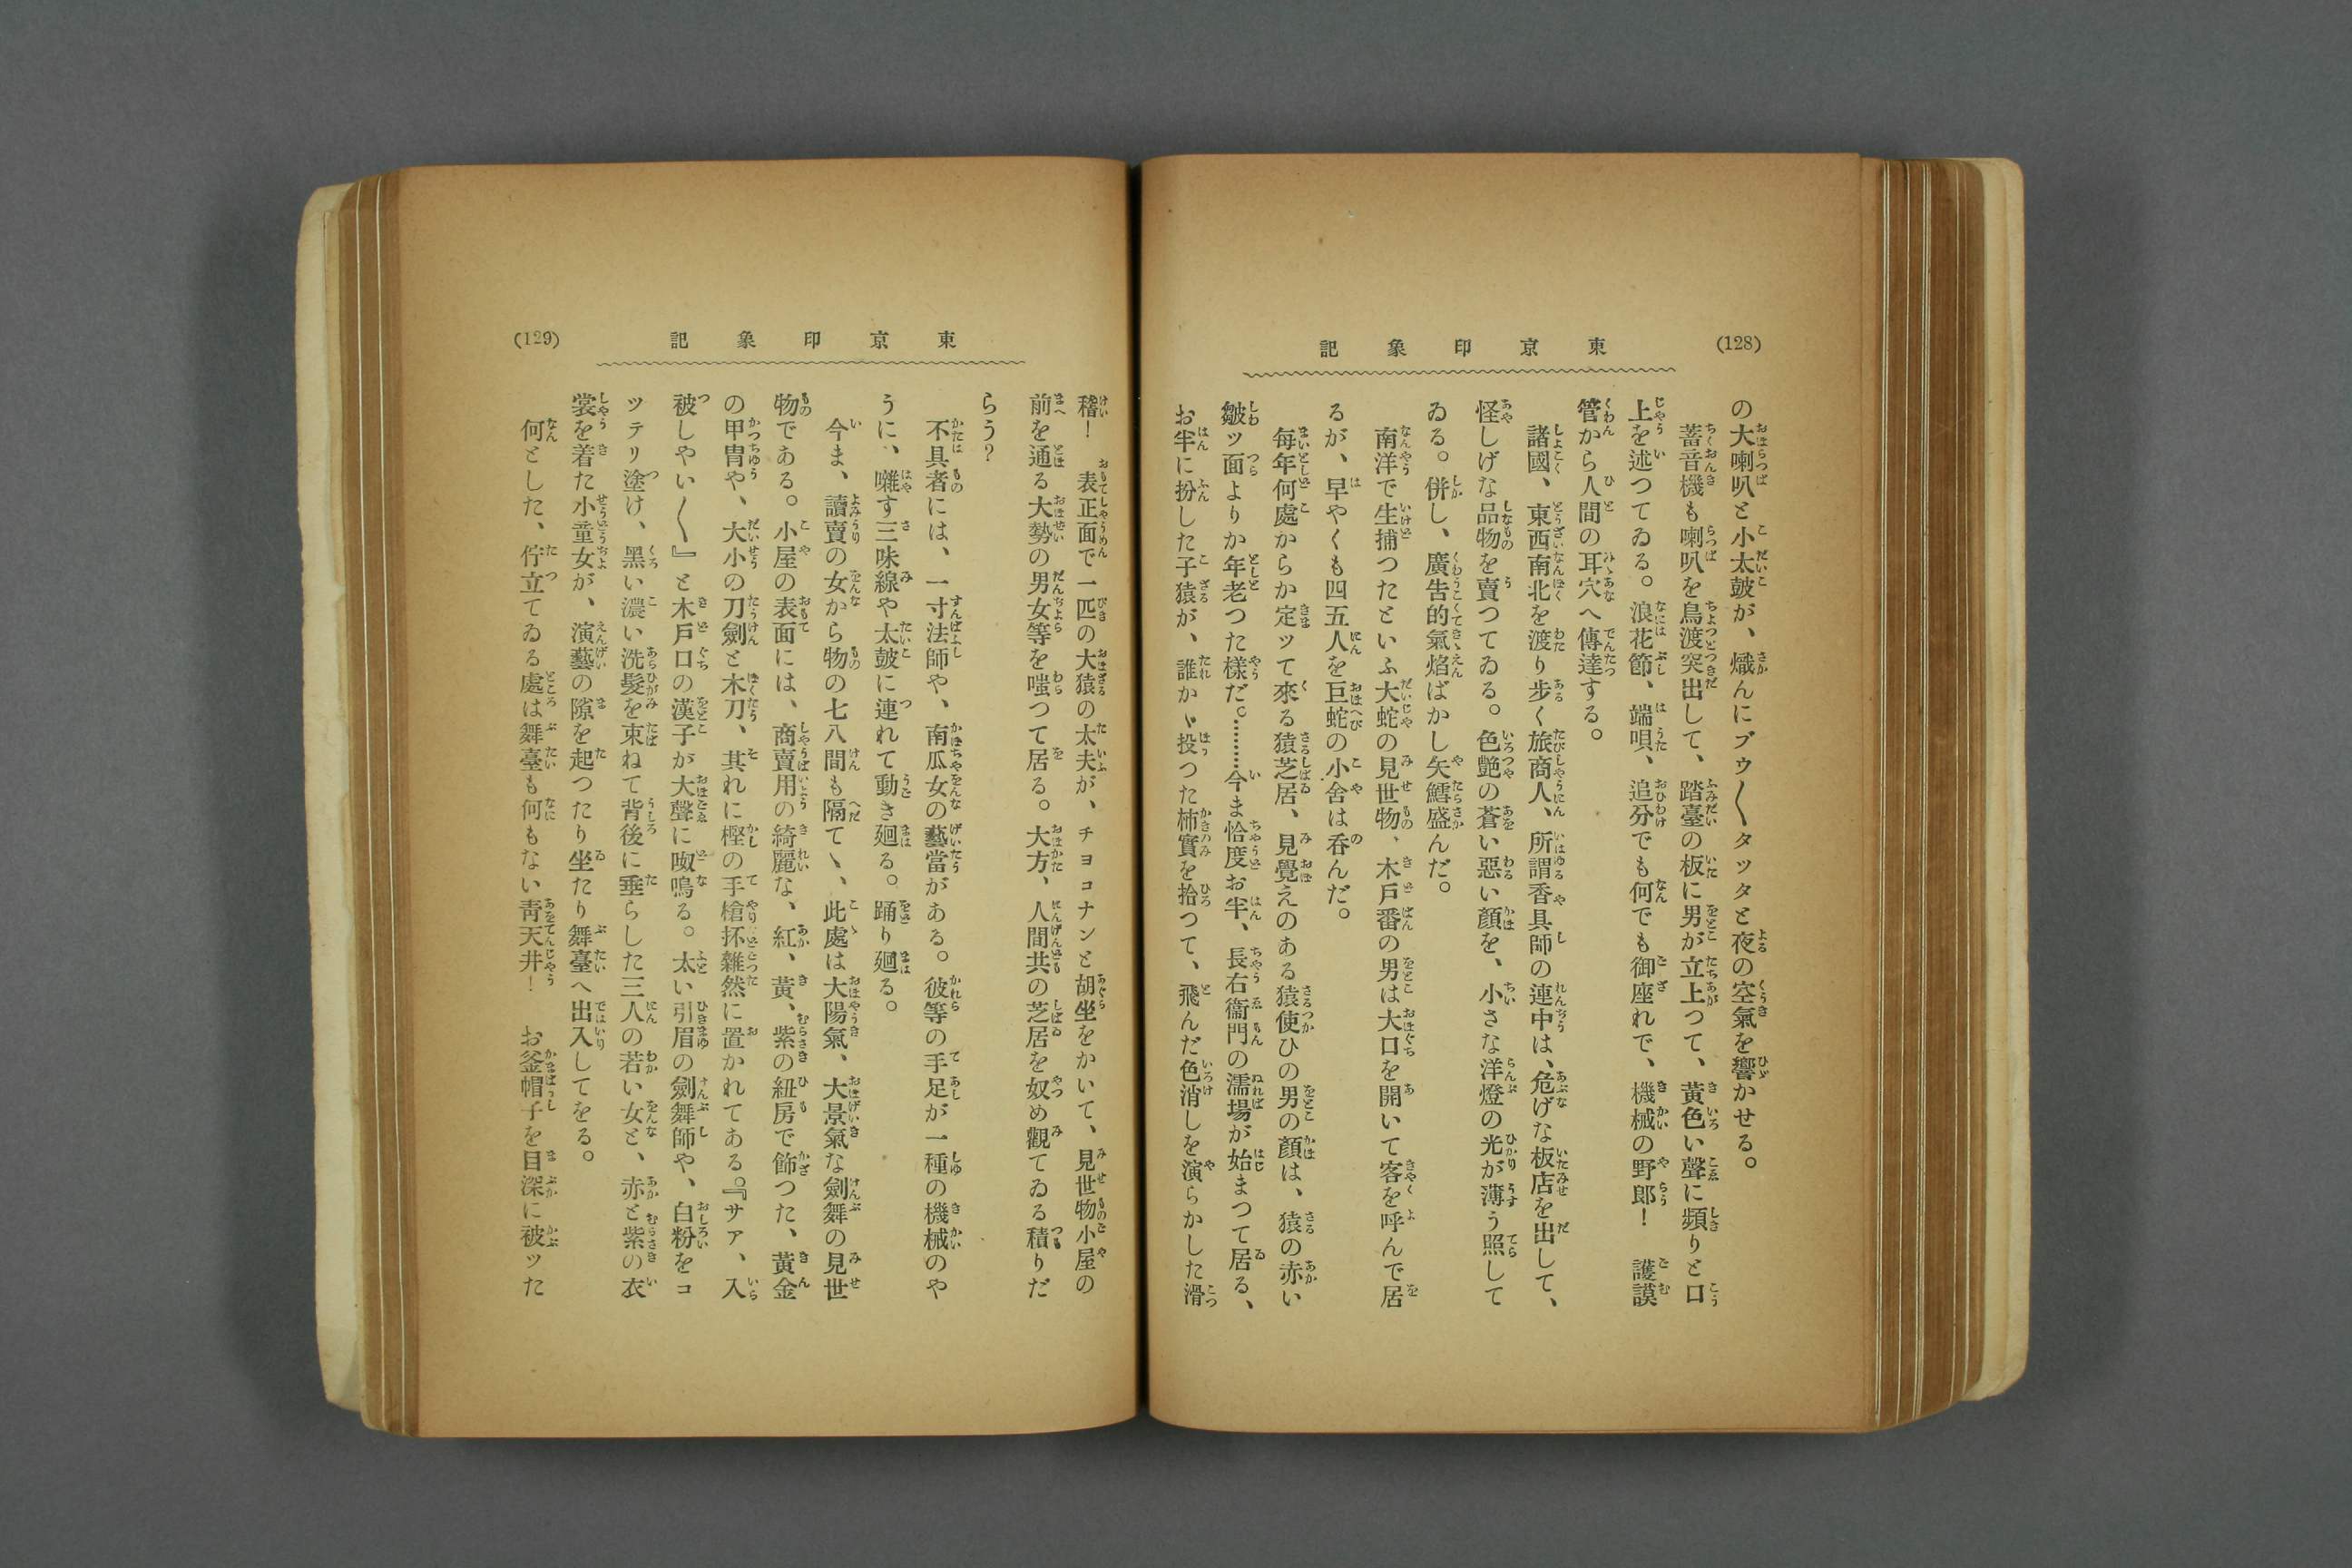 (128)
東京印象記
の大喇叭と小太鼓が、熾んにブゥ〱タッタと夜の空氣を響かせる。
蓄音機も喇叭を鳥渡突出して、踏臺の板に男が立上つて、黃色い聲に頻りと口
上を述つてゐる。浪花節、端唄、追分でも何でも御座れで、機械の野郎！　護謨
管から人間の耳穴へ傳達する。
諸國、東西南北を渡り步く旅商人、所謂香具師の連中は、危げな板店を出して、
怪しげな品物を賣つてゐる。色艶の蒼い惡い顏を、小さな洋燈の光が薄う照して
ゐる。併し、廣告的氣焰ばかし矢鱈盛んだ。
南洋で生捕つたといふ大蛇の見世物、木戸番の男は大口を開いて客を呼んで居
るが、早やくも四五人を巨蛇の小舍は呑んだ。
每年何處からか定ッて來る猿芝居、見覺えのある猿使ひの男の顏は、猿の赤い
皺ッ面よりか年老つた樣だ。………今ま恰度お半、長右衞門の濡場が始まつて居る、
お半に扮した子猿が、誰かゞ投つた柿實を拾つて、飛んだ色消しを演らかした滑
東京印象記
(129)
稽！　表正面で一匹の大猿の太夫が、チョコナンと胡坐をかいて、見世物小屋の
前を通る大勢の男女等を嗤つて居る。大方、人間共の芝居を奴め觀てゐる積りだ
らう？
不具者には、一寸法師や、南瓜女の藝當がある。彼等の手足が一種の機械のや
うに、囃す三味線や太鼓に連れて動き廻る。踊り廻る。
今ま、讀賣の女から物の七八間も隔てゝ、此處は大陽氣、大景氣な劍舞の見世
物である。小屋の表面には、商賣用の綺麗な、紅、黃、紫の紐房で飾つた、黃金
の甲冑や、大小の刀劍と木刀、其れに樫の手槍抔雜然に置かれてある。『サァ、入
被しやい〱』と木戸口の漢子が大聲に呶鳴る。太い引眉の劍舞師や、白粉をコ
ッテリ塗け、黑い濃い洗髮を束ねて背後に垂らした三人の若い女と、赤と紫の衣
裳を着た小童女が、演藝の隙を起つたり坐たり舞臺へ出入してをる。
何とした、佇立てゐる處は舞臺も何もない靑天井！　お釜帽子を目深に被ッた